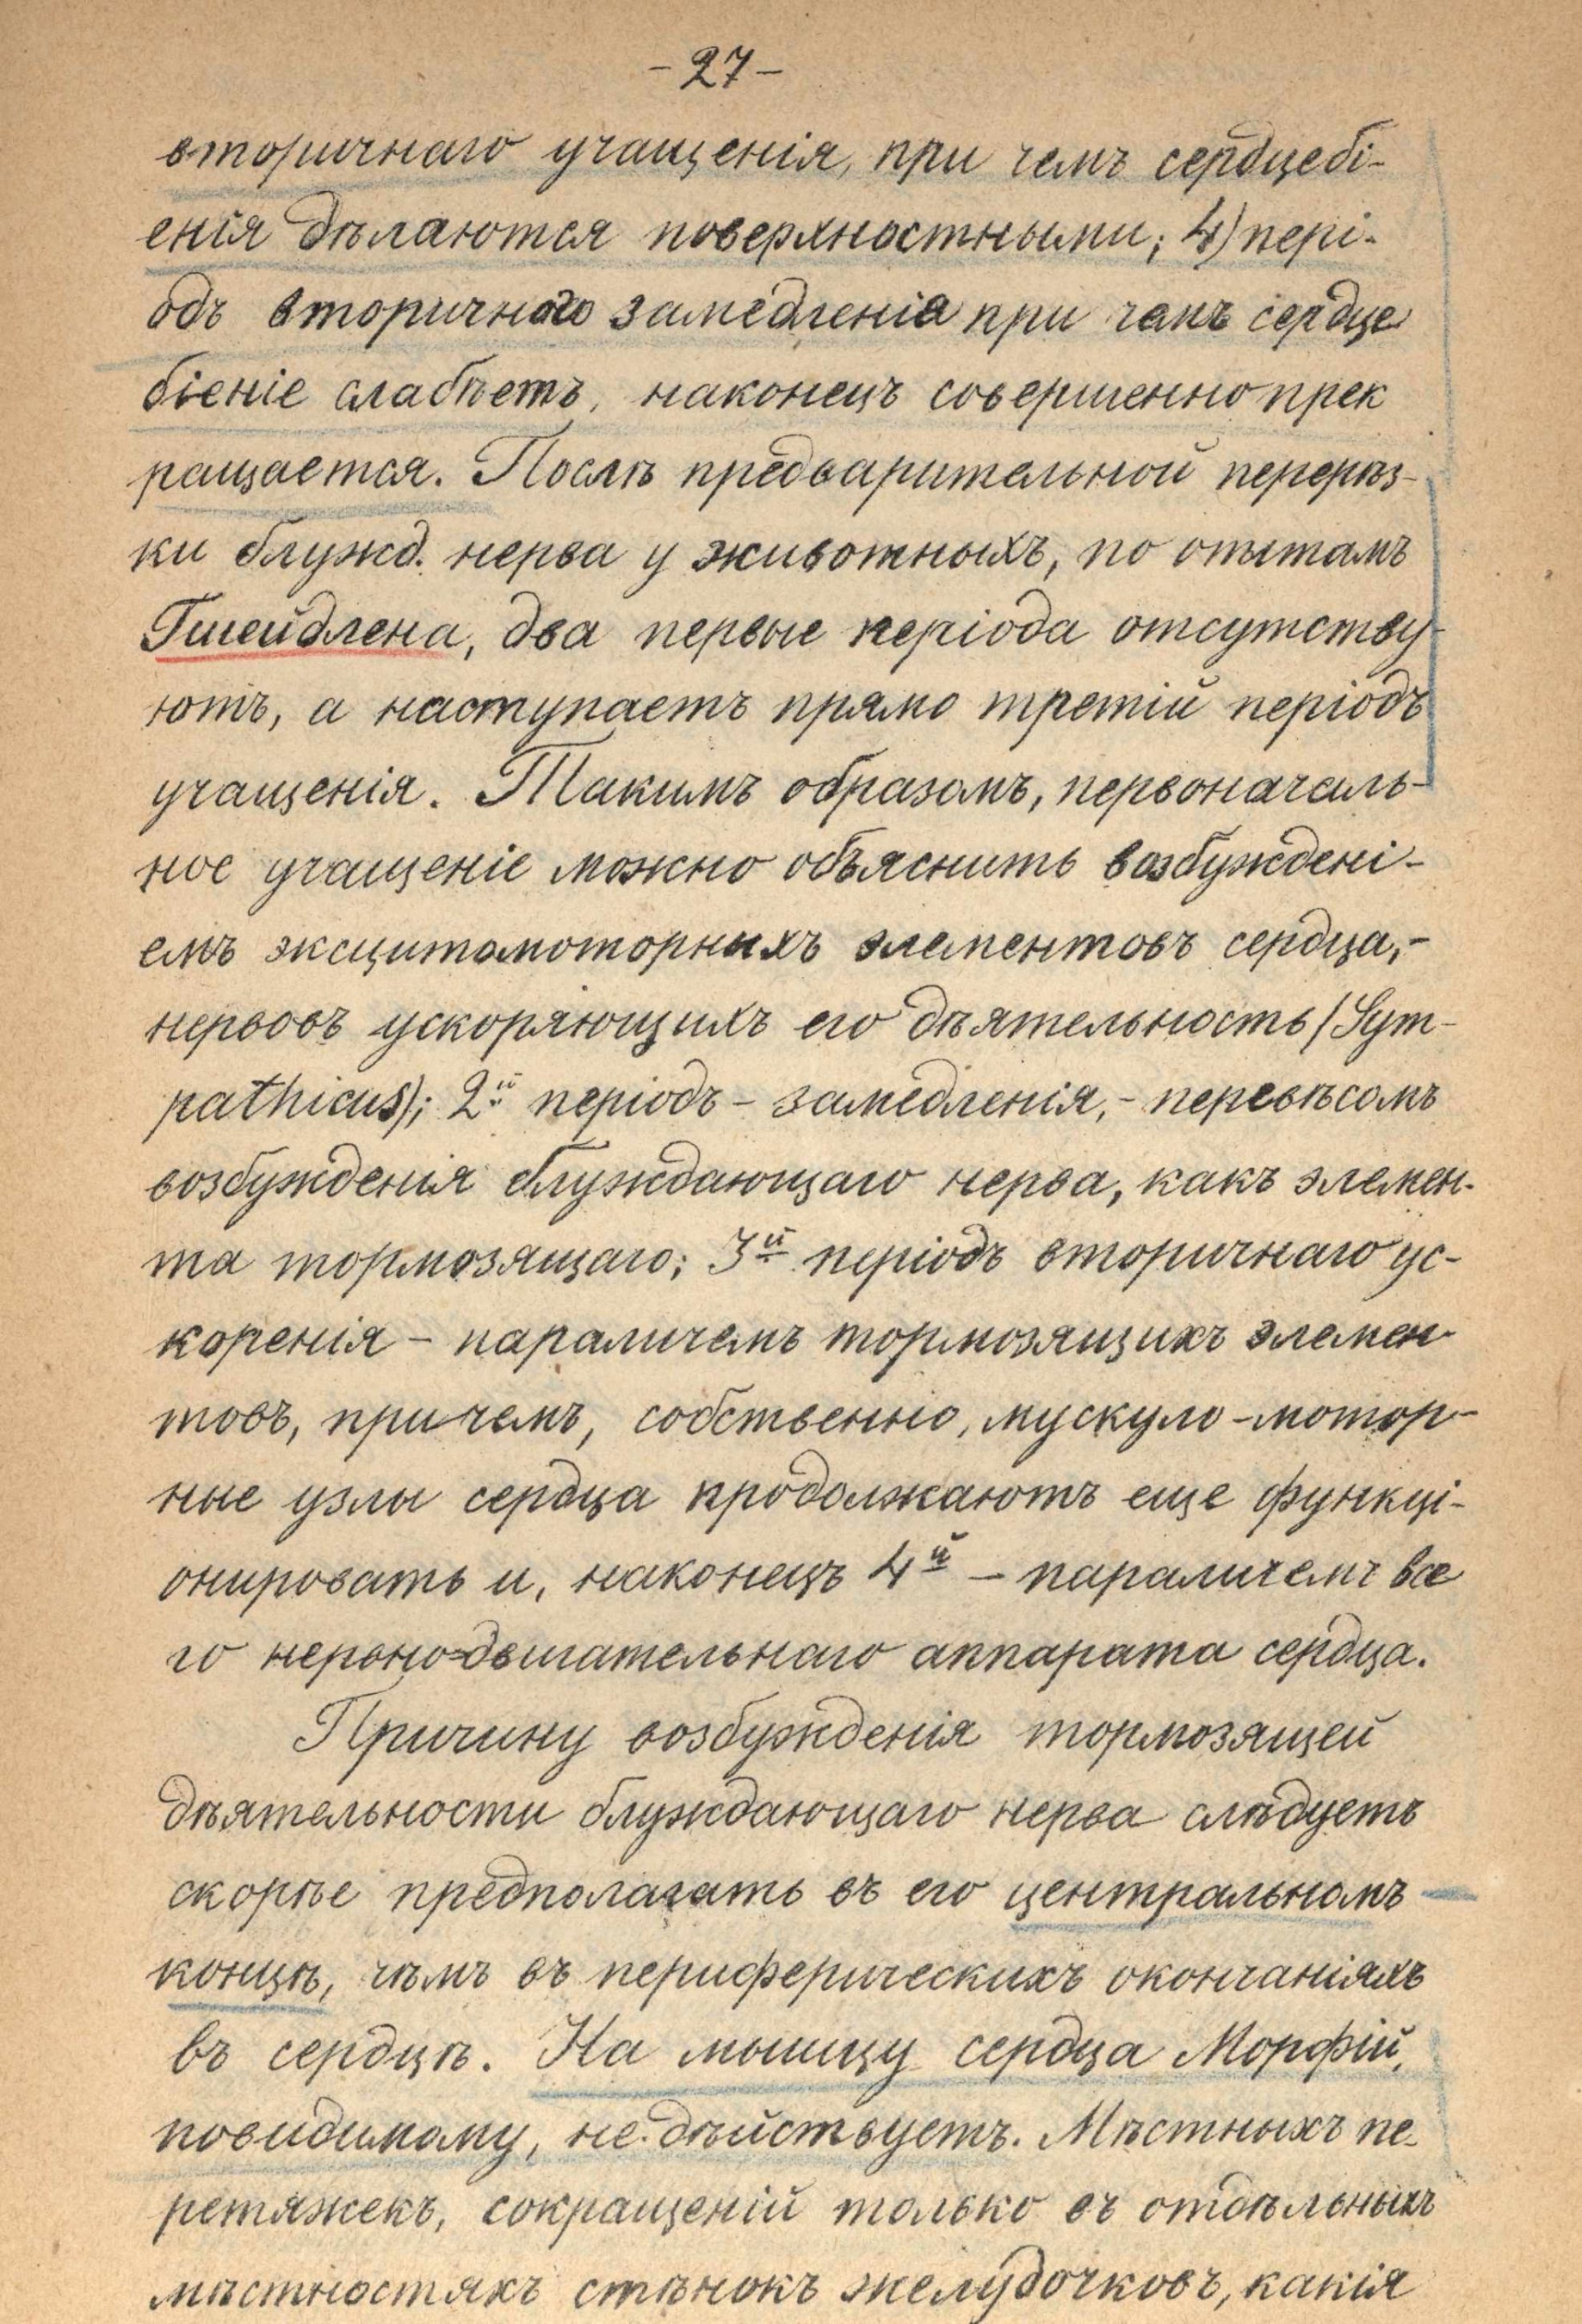 -27-
вторичнаго учащенія, при чемъ сердцебі-
енія дѣлаются поверхностными; 4) пері-
одъ вторичного замедленія при чемъ сердце
біеніе слабѣетъ, наконецъ совершенно прек
ращается. Послѣ предварительной перерѣз-
ки блужд. нерва у животныхъ, по опытамъ
Гшейдлена, два первые періода отсутству-
ютъ, а наступаетъ прямо третій періодъ
учащенія. Такимъ образомъ, первоначаль-
ное учащеніе можно объяснить возбужденi-
емъ эксцитомоторныхъ элементовъ сердца,-
нервовъ ускоряющихъ его дѣятельность (Sym-
pathicus); 2й періодъ - замедленія, - перевѣсомъ
возбужденія блуждающаго нерва, какъ элемен-
та тормозящаго; 3й періодъ вторичнаго ус-
коренія - параличемъ тормозящихъ элемен-
товъ, причемъ, собственно, мускуло-мотор-
ные узлы сердца продолжаютъ еще функці-
онировать и, наконецъ 4й - параличемъ все
го нервно-двигательнаго аппарата сердца.
Причину возбужденія тормозящей
дѣятельности блуждающаго нерва слѣдуетъ
скорѣе предполагать въ его центральномъ
концѣ, чѣмъ въ периферическихъ окончаніяхъ
въ сердцѣ. На мышцу сердца Морфій,
повидимому, не дѣйствуетъ. Мѣстныхъ пе-
ретяжекъ, сокращеній только въ отдѣльныхъ
мѣстностяхъ стѣнокъ желудочковъ, какія